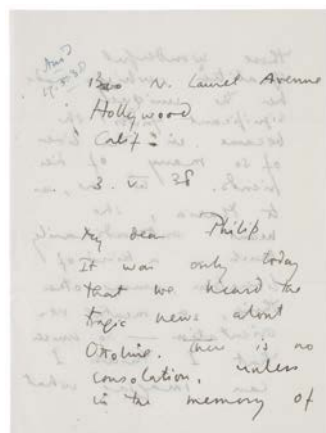 Ans?
N. Laurel Avenue
Hollywood
Calif.
3. V. 38
My dear Philip
It was only today
that we heard the
tragic news about
Ottoline. There is no
consolation, unless
in the memory of